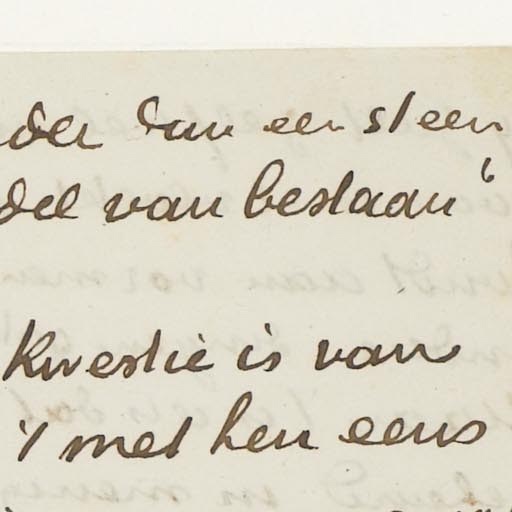 der dan een steen
del van bestaan"
Kwestie is van
't met hen eens